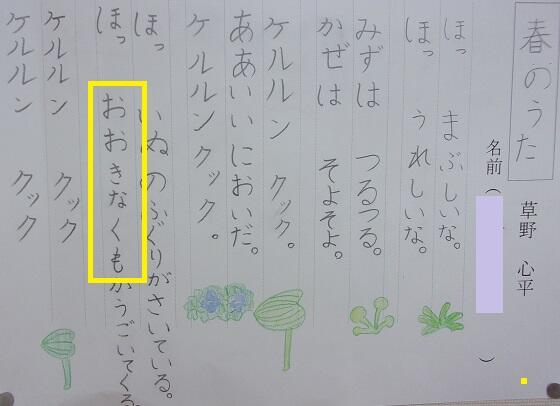 春のうた
草野 心平
名前( )
ほっ まぶしいな。
ほっ うれしいな。
みずは つるつる。
かぜは そよそよ。
ケルルン クック。
ああいいにおいだ。
ケルルン クック。
ほっ いぬのふぐりがさいている。
ほっ おおきなくもがうごいてくる。
ケルルン クック
ケルルン クック